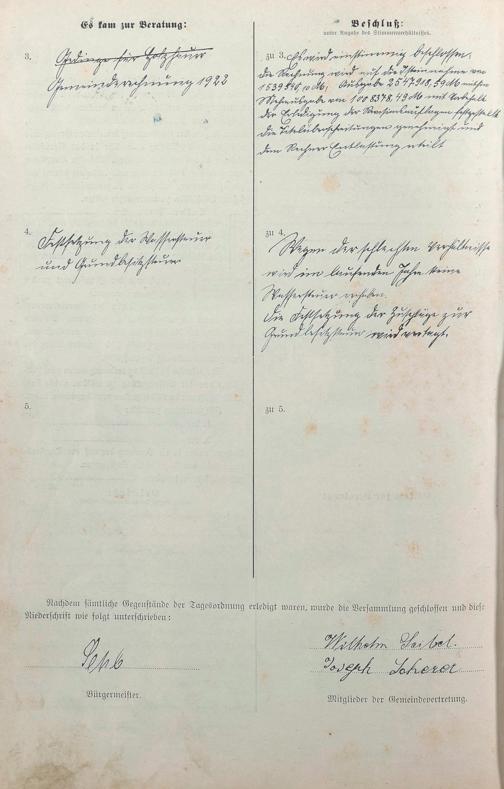 Es kam zur Beratung:
3.
Gedinge für Holzhauer
Gemeinderechnung 1922
4.
Festsetzung der Wassersteuer
und Grundbesitzsteuer
5.
Beschluß:
unter Angabe des Stimmenverhältnisses.
zu 3. Es wird einstimmig beschlossen,
die Rechnung wird auf die Isteinnahme von
1539540,10 M, Ausgabe 2547918,59 M mithin
Mehrausgabe von 1008378,49 M mit Vorbehalt
der Erledigung der Revisionsauflagen festgestellt
die Titelüberschreitungen genehmigt und
dem Rechner Entlastung erteilt
zu 4.
Wegen der schlechten Verhältnisse
wird im laufenden Jahre keine
Wassersteuer erhoben.
Die Festsetzung der Zuschläge zur
Grundbesitzsteuer wird vertagt.
zu 5.
Nachdem sämtliche Gegenstände der Tagesordnung erledigt waren, wurde die Versammlung geschlossen und diese
Niederschrift wie folgt unterschrieben:
Bürgermeister.
Wilhelm Seibel.
Joseph Scherer
Mitglieder der Gemeindevertretung.